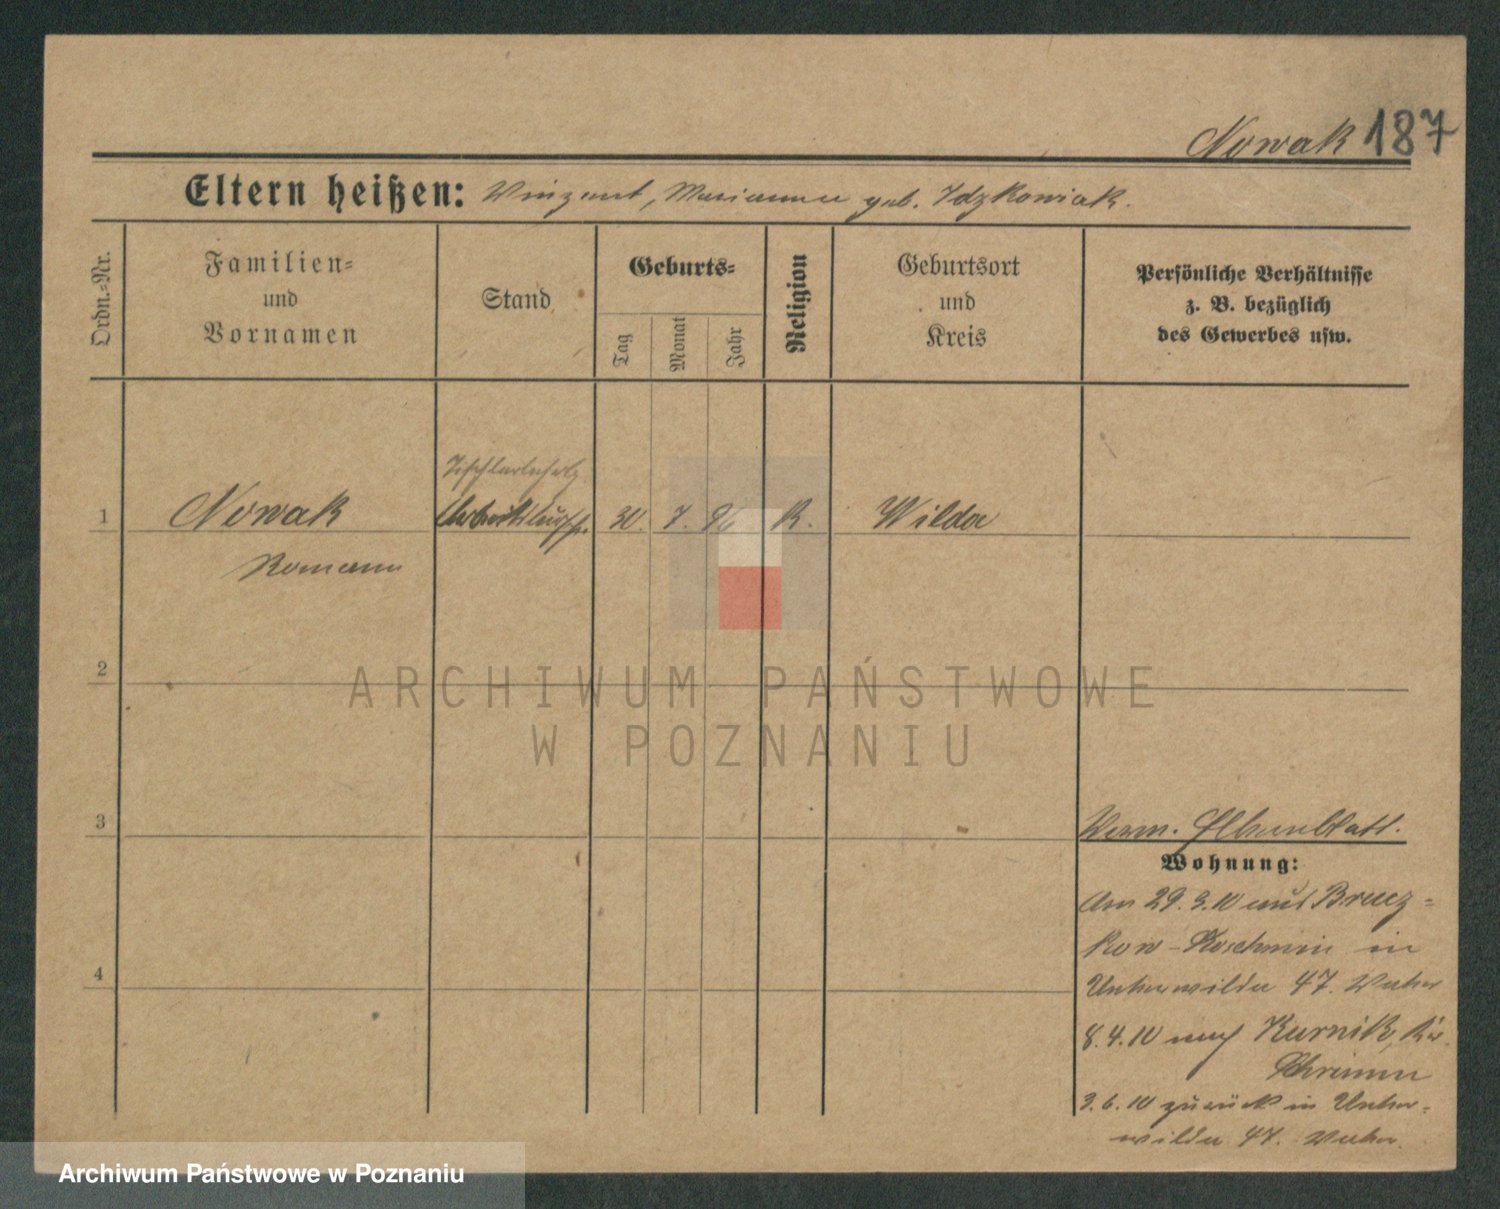 Nowak 187
Eltern heißen: Vinzent, Marianna geb. Idzkowiak.
Ordn.-Nr.
Familien-
und
Vornamen
Stand
Geburts-
Tag
Monat
Jahr
Religion
Geburtsort
und
Kreis
Persönliche Verhältnisse
z. B. bezüglich
des Gewerbes usw.
1
Nowak
Romann
Arbeitsbursche
30. 7. 96
K.
Wilda
2
3
4
Verm. Elternblatt.
Wohnung:
Am 29.3.10 aus Brucz-
kow-Koschmin in
Unterwilda 47. Vater
8.4.10 nach Kurnik, Kr.
Schrimm
3.6.10 zurück in Unter-
wilda 47. Vater.
ARCHIWUM PAŃSTWOWE
W POZNANIU
Archiwum Państwowe w Poznaniu